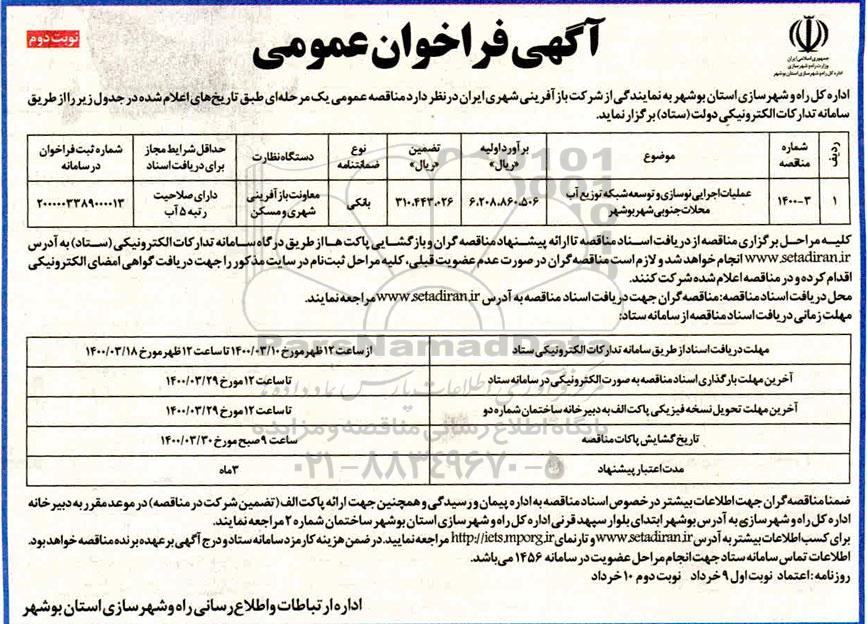 جمهوری اسلامی ایران
وزارت راه و شهرسازی
اداره کل راه و شهرسازی استان بوشهر
آگهی فراخوان عمومی
نوبت دوم
اداره کل راه و شهرسازی استان بوشهر به نمایندگی از شرکت بازآفرینی شهری ایران در نظر دارد مناقصه عمومی یک مرحله‌ای طبق تاریخ‌های اعلام شده در جدول زیر را از طریق
سامانه تدارکات الکترونیکی دولت (ستاد) برگزار نماید.
ردیف | شماره مناقصه | موضوع | برآورد اولیه «ریال» | تضمین «ریال» | نوع ضمانتنامه | دستگاه نظارت | حداقل شرایط مجاز برای دریافت اسناد | شماره ثبت فراخوان در سامانه
۱ | ۱۴۰۰-۳ | عملیات اجرایی نوسازی و توسعه شبکه توزیع آب محلات جنوبی شهر بوشهر | ۶.۲۰۸.۸۶۰.۵۰۶ | ۳۱۰.۴۴۳.۰۲۶ | بانکی | معاونت بازآفرینی شهری و مسکن | دارای صلاحیت رتبه ۵ آب | ۲۰۰۰۰۰۳۳۸۹۰۰۰۰۱۳
کلیه مراحل برگزاری مناقصه از دریافت اسناد مناقصه تا ارائه پیشنهاد مناقصه گران و بازگشایی پاکت ها از طریق درگاه سامانه تدارکات الکترونیکی (ستاد) به آدرس
www.setadiran.ir انجام خواهد شد و لازم است مناقصه گران در صورت عدم عضویت قبلی، کلیه مراحل ثبت‌نام در سایت مذکور را جهت دریافت گواهی امضای الکترونیکی
اقدام کرده و در مناقصه اعلام شده شرکت کنند.
محل دریافت اسناد مناقصه: مناقصه گران جهت دریافت اسناد مناقصه به آدرس www.setadiran.ir مراجعه نمایند.
مهلت زمانی دریافت اسناد مناقصه از سامانه ستاد:
مهلت دریافت اسناد از طریق سامانه تدارکات الکترونیکی ستاد | از ساعت ۱۲ ظهر مورخ ۱۴۰۰/۰۳/۱۰ تا ساعت ۱۲ ظهر مورخ ۱۴۰۰/۰۳/۱۸
آخرین مهلت بارگذاری اسناد مناقصه به صورت الکترونیکی در سامانه ستاد | تا ساعت ۱۲ مورخ ۱۴۰۰/۰۳/۲۹
آخرین مهلت تحویل نسخه فیزیکی پاکت الف به دبیرخانه ساختمان شماره دو | تا ساعت ۱۲ مورخ ۱۴۰۰/۰۳/۲۹
تاریخ گشایش پاکات مناقصه | ساعت ۹ صبح مورخ ۱۴۰۰/۰۳/۳۰
مدت اعتبار پیشنهاد | ۳ ماه
ParsNamadData
پایگاه اطلاع رسانی مناقصه و مزایده
۰۲۱-۸۸۳۴۹۶۷۰-۵
ضمنا مناقصه گران جهت اطلاعات بیشتر در خصوص اسناد مناقصه به اداره پیمان و رسیدگی و همچنین جهت ارائه پاکت الف (تضمین شرکت در مناقصه) در موعد مقرر به دبیرخانه
اداره کل راه و شهرسازی به آدرس بوشهر ابتدای بلوار سپهبد قرنی اداره کل راه و شهرسازی استان بوشهر ساختمان شماره ۲ مراجعه نمایند.
برای کسب اطلاعات بیشتر به آدرس www.setadiran.ir و تارنمای http://iets.mporg.ir مراجعه نمایید. در ضمن هزینه کارمزد سامانه ستاد و درج آگهی بر عهده برنده مناقصه خواهد بود.
اطلاعات تماس سامانه ستاد جهت انجام مراحل عضویت در سامانه ۱۴۵۶ می‌باشد.
روزنامه: اعتماد نوبت اول ۹ خرداد نوبت دوم ۱۰ خرداد
اداره ارتباطات و اطلاع رسانی راه و شهرسازی استان بوشهر